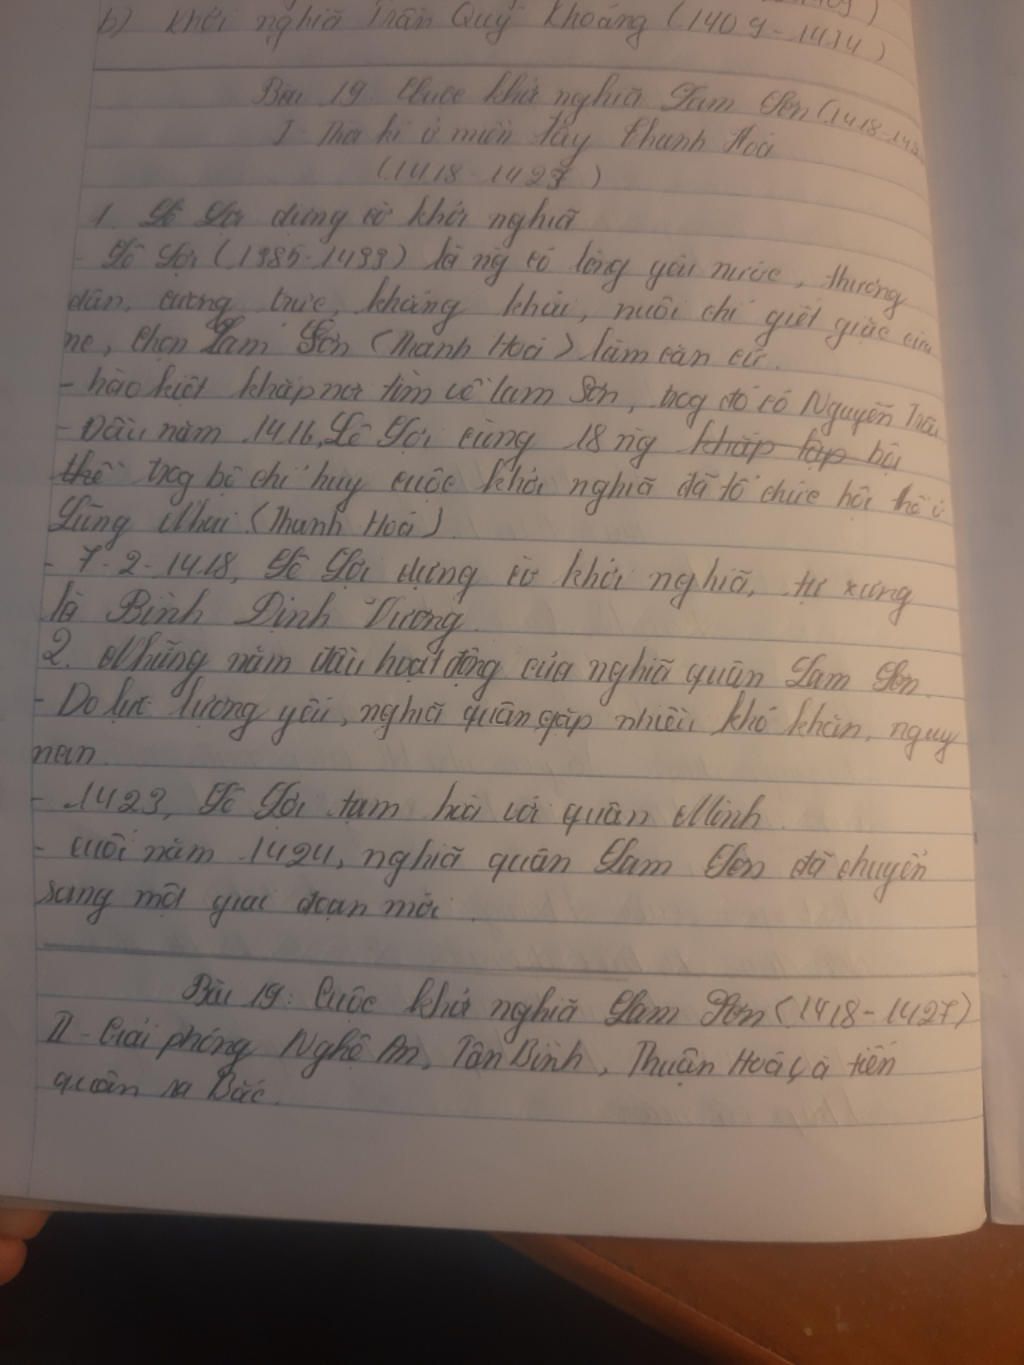 b) Khởi nghĩa Trần Quý Khoáng (1409-1414)
Bài 19. Cuộc khởi nghĩa Lam Sơn (1418-142
I- Thời kì ở miền Tây Thanh Hoá
(1418-1423)
1. Lê Lợi dựng cờ khởi nghĩa
- Lê Lợi (1385-1433) là ng có lòng yêu nước, thương
dân, cương trực, khảng khái, nuôi chí giết giặc cứu
nc, chọn Lam Sơn (Thanh Hoá) làm căn cứ.
- hào kiệt khắp nơi tìm về lam Sơn, trog đó có Nguyễn Trãi
- Đầu năm 1416, Lê Lợi cùng 18 ng khắp lập bộ
thề trog bộ chỉ huy cuộc khởi nghĩa đã tổ chức hội thề ở
Lũng Nhai (Thanh Hoá)
- 7-2-1418, Lê Lợi dựng cờ khởi nghĩa, tự xưng
là Bình Định Vương.
2. Những năm đầu hoạt động của nghĩa quân Lam Sơn.
- Do lực lượng yếu, nghĩa quân gặp nhiều khó khăn, nguy
nan.
- 1423, Lê Lợi tạm hoà với quân Minh.
- cuối năm 1424, nghĩa quân Lam Sơn đã chuyển
sang một giai đoạn mới.
Bài 19: Cuộc khởi nghĩa Lam Sơn (1418-1427)
II- Giải phóng Nghệ An, Tân Bình, Thuận Hoá và tiến
quân ra Bắc.